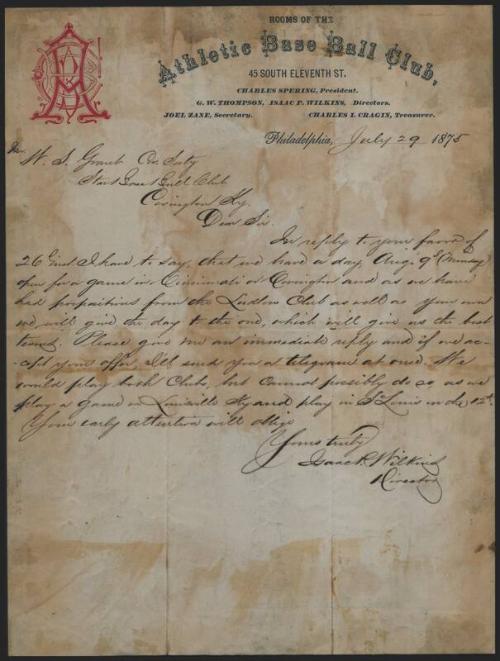 ROOMS OF THE
Athletic Base Ball Club,
45 SOUTH ELEVENTH ST.
CHARLES SPERING, President.
G. W. THOMPSON, ISAAC P. WILKINS, Directors.
JOEL ZANE, Secretary. CHARLES I. CRAGIN, Treasurer.
Philadelphia, July 29 1875
W. S. Grant Cor. Secty
Star Base Ball Club
Covington Ky.
Dear Sir.
In reply to your favor of
26 Inst I have to say, that we have a day Aug. 9th Monday
open for a game in Cincinnati or Covington and as we have
had propositions from the Ludlow Club as well as your own
we will give the day to the one, which will give us the best
terms. Please give me an immediate reply and if we ac-
-cept your offer, Ill send you a telegram at once. We
would play both Clubs, but cannot possibly do so, as we
play a game in Louisville Ky and play in St Louis on the 12th
Your early attention will oblige
Yours truly
Isaac P. Wilkins
Director